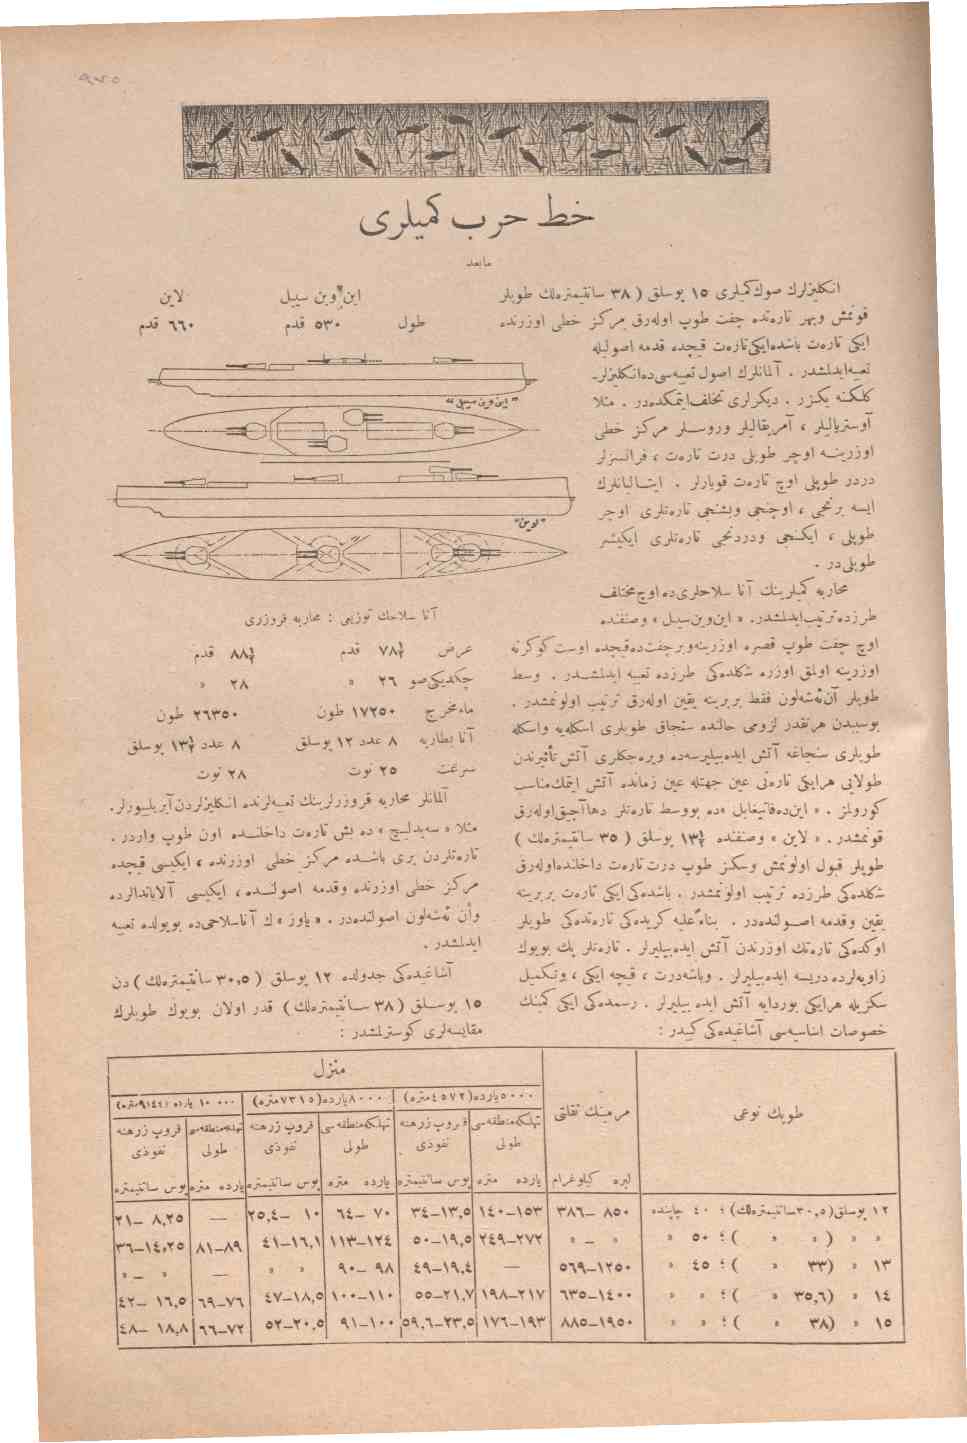 ٩٧٥
خط حرب كمیلری
مابعد
انكلیزلرك صوك كمیلری ١٥ بوسلق ( ٣٨ سانتیمتره‌لك طوپلر
قونمش وبهر تاره‌تده چفت طوپ اوله‌رق مركز خطی اوزرنده
ایكی تاره‌ت باشده‌ایكی‌تاره‌ت قیچده قدمه اصولیله
تعبیه‌ایدلمشدر . آلمانلرك اصول تعبیه‌سی‌ده‌انكلیزلر-
كلكنه یكزر . دیكرلری تخلف‌ایتمكده‌در . مثلا
آوستریالیلر ، آمریقالیلر وروسلر مركز خطی
اوزرینه اوچر طوپلی درت تاره‌ت ، فرانسزلر
دردر طوپلی اوچ تاره‌ت قویارلر . ایتالیانلرك
ایسه برنجی ، اوچنجی وبشنجی تاره‌تلری اوچر
طوپلی ، ایكنجی ودردنجی تاره‌تلری ایكیشر
طوپلی‌در .
محاربه كمیلرینك آنا سلاحلری‌ده اوچ‌مختلف
طرزده‌ترتیب‌ایدلمشدر. « این‌وین‌سیبل » وصنفنده
اوچ چفت طوپ قصره اوزرینه‌وبرچفت‌ده‌قیچده اوست كوكرته
اوزرینه اولمق اوزره شكلده‌كی طرزده تعبیه ایدلمشدر . وسط
طوپلر آن‌ئه‌شه‌لون فقط بربرینه یقین اوله‌رق ترتیب اولونمشدر .
بوسببدن هرنقدر لزومی حالنده سنجاق طوپلری اسكله‌یه واسكله
طوپلری سنجاغه آتش ایده‌بیلیرسه‌ده ویره‌جكلری آتش تأثیرندن
طولایی هرایكی تاره‌تی عین جهتله عین زمانده آتش ایتمك‌مناسب
كورولمز . « این‌ده‌فاتیغابل »ده بووسط تاره‌تلر دهاآچیق‌اوله‌رق
قونمشدر. « لاین » وصنفنده ١٣½ بوسلق ( ٣٥ سانتیمتره‌لك )
طوپلر قبول اولونمش وسكز طوپ درت تاره‌ت داخلنده‌اوله‌رق
شكلده‌كی طرزده ترتیب اولونمشدر . باشده‌كی ایكی تاره‌ت بربرینه
یقین وقدمه اصولنده‌در . بناءً علیه كریده‌كی تاره‌تده‌كی طوپلر
اوكده‌كی تاره‌تك اوزرندن آتش ایده‌بیلیرلر . تاره‌تلر پك بویوك
زاویه‌لرده دریسه ایده‌بیلیرلر. وباشه‌درت ، قیچه ایكی ، وتكمیل
سكزیله هرایكی بوردایه آتش ایده بیلیرلر . رسمده‌كی ایكی كمینك
خصوصات اساسیه‌سی آشاغیده‌كی كبیدر :
این وین سیبل لاین
طول ٥٣٠ قدم ٦٦٠ قدم
« این وین سیبل »
« لاین »
آنا سلاحك توزیعی : محاربه قروزری
عرض ٧٨½ قدم ٨٨½ قدم
چكدیكی‌صو ٢٦ » ٢٨ »
ماء‌مخرج ١٧٢٥٠ طون ٢٦٣٥٠ طون
آنا بطاریه ٨ عدد ١٢ بوسلق ٨ عدد ١٣½ بوسلق
سرعت ٢٥ نوت ٢٨ نوت
آلمانلر محاربه قروزرلرینك تعبیه‌لرنده انكلیزلردن‌آیریلییورلر.
مثلا « سه‌یدلیچ » ده بش تاره‌ت داخلنده اون طوپ واردر .
تاره‌تلردن بری باشده مركز خطی اوزرنده ، ایكیسی قیچده
مركز خطی اوزرنده وقدمه اصولنده ، ایكیسی آلاباندالرده
وآن ئه‌شه‌لون اصولنده‌در . « یاوز » ك آناسلاحی‌ده بویولده تعبیه
ایدلمشدر .
آشاغیده‌كی جدولده ١٢ بوسلق ( ٣٠,٥ سانتیمتره‌لك ) دن
١٥ بوسلق ( ٣٨ سانتیمتره‌لك ) قدر اولان بویوك طوپلرك
مقایسه‌لری كوسترلمشدر :
طوپك نوعی | مرمینك ثقلتی | منزل
٥٠٠٠ یارده (٤٥٧٢ متره) | ٨٠٠٠ یارده (٧٣١٥ متره) | ١٠٠٠٠ یارده (٩١٤٤ متره)
تهلكه‌منطقه‌سی طولی | قروپ زرهنه نفوذی | تهلكه‌منطقه‌سی طولی | قروپ زرهنه نفوذی | تهلكه‌منطقه‌سی طولی | قروپ زرهنه نفوذی
لیره كیلوغرام | یارده متره | بوس سانتیمتره | یارده متره | بوس سانتیمتره | یارده متره | بوس سانتیمتره
١٢ بوسلق (٣٠,٥ سانتیمتره‌لك) ؛ ٤٠ چاپنده | ٨٥٠ –٣٨٦ | ١٥٣–١٤٠ | ١٣,٥–٣٤ | ٧٠ –٦٤ | ١٠ –٢٥,٤ | — | ٨,٢٥ –٢١
» » ( » » ) ؛ ٥٠ » | » – » | ٢٧٢–٢٤٩ | ١٩,٥–٥٠ | ١٢٤–١١٣ | ١٦,١–٤١ | ٨٩–٨١ | ١٤,٢٥–٣٦
١٣ » (٣٣ » ) ؛ ٤٥ » | ١٢٥٠–٥٦٩ | — | ١٩,٤–٤٩ | ٩٨ –٩٠ | » » | — | » – »
١٤ » (٣٥,٦ » ) ؛ » » | ١٤٠٠–٦٣٥ | ٢١٧–١٩٨ | ٢١,٧–٥٥ | ١١٠–١٠٠ | ١٨,٥–٤٧ | ٧٦–٦٩ | ١٦,٥ –٤٢
١٥ » (٣٨ » ) ؛ » » | ١٩٥٠–٨٨٥ | ١٩٣–١٧٦ | ٢٣,٥–٥٩,٦ | ١٠٠–٩١ | ٢٠,٥–٥٢ | ٧٢–٦٦ | ١٨,٨ –٤٨